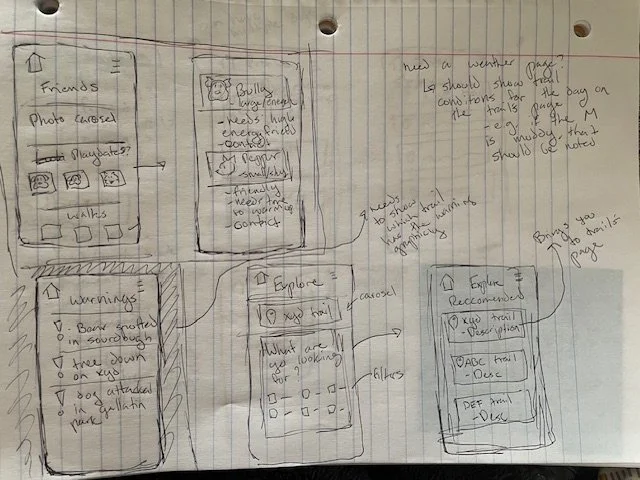 Friends
Photo carosel
Playdates?
walks
Bully
- large/energy
- needs high
energy friend
- contact
Pepper
- small/shy
- friendly
- needs time
to warmup
- contact
need a weather page?
↳ should show trail
conditions for the day on
the trails page
- e.g. if the M
is muddy, that
should be noted
needs
to show
which trail
has the warning
graphically
Warnings
! Bear spotted
in sourdough
! tree down
on xyd
! dog attacked
in gallatin
park
Explore
xyd trail
What are
you looking
for?
carosel
filters
Explore
Reccomended
xyd trail
- Description
ABC trail
- Desc
DEF trail
- Desc
Brings you
to trails
page